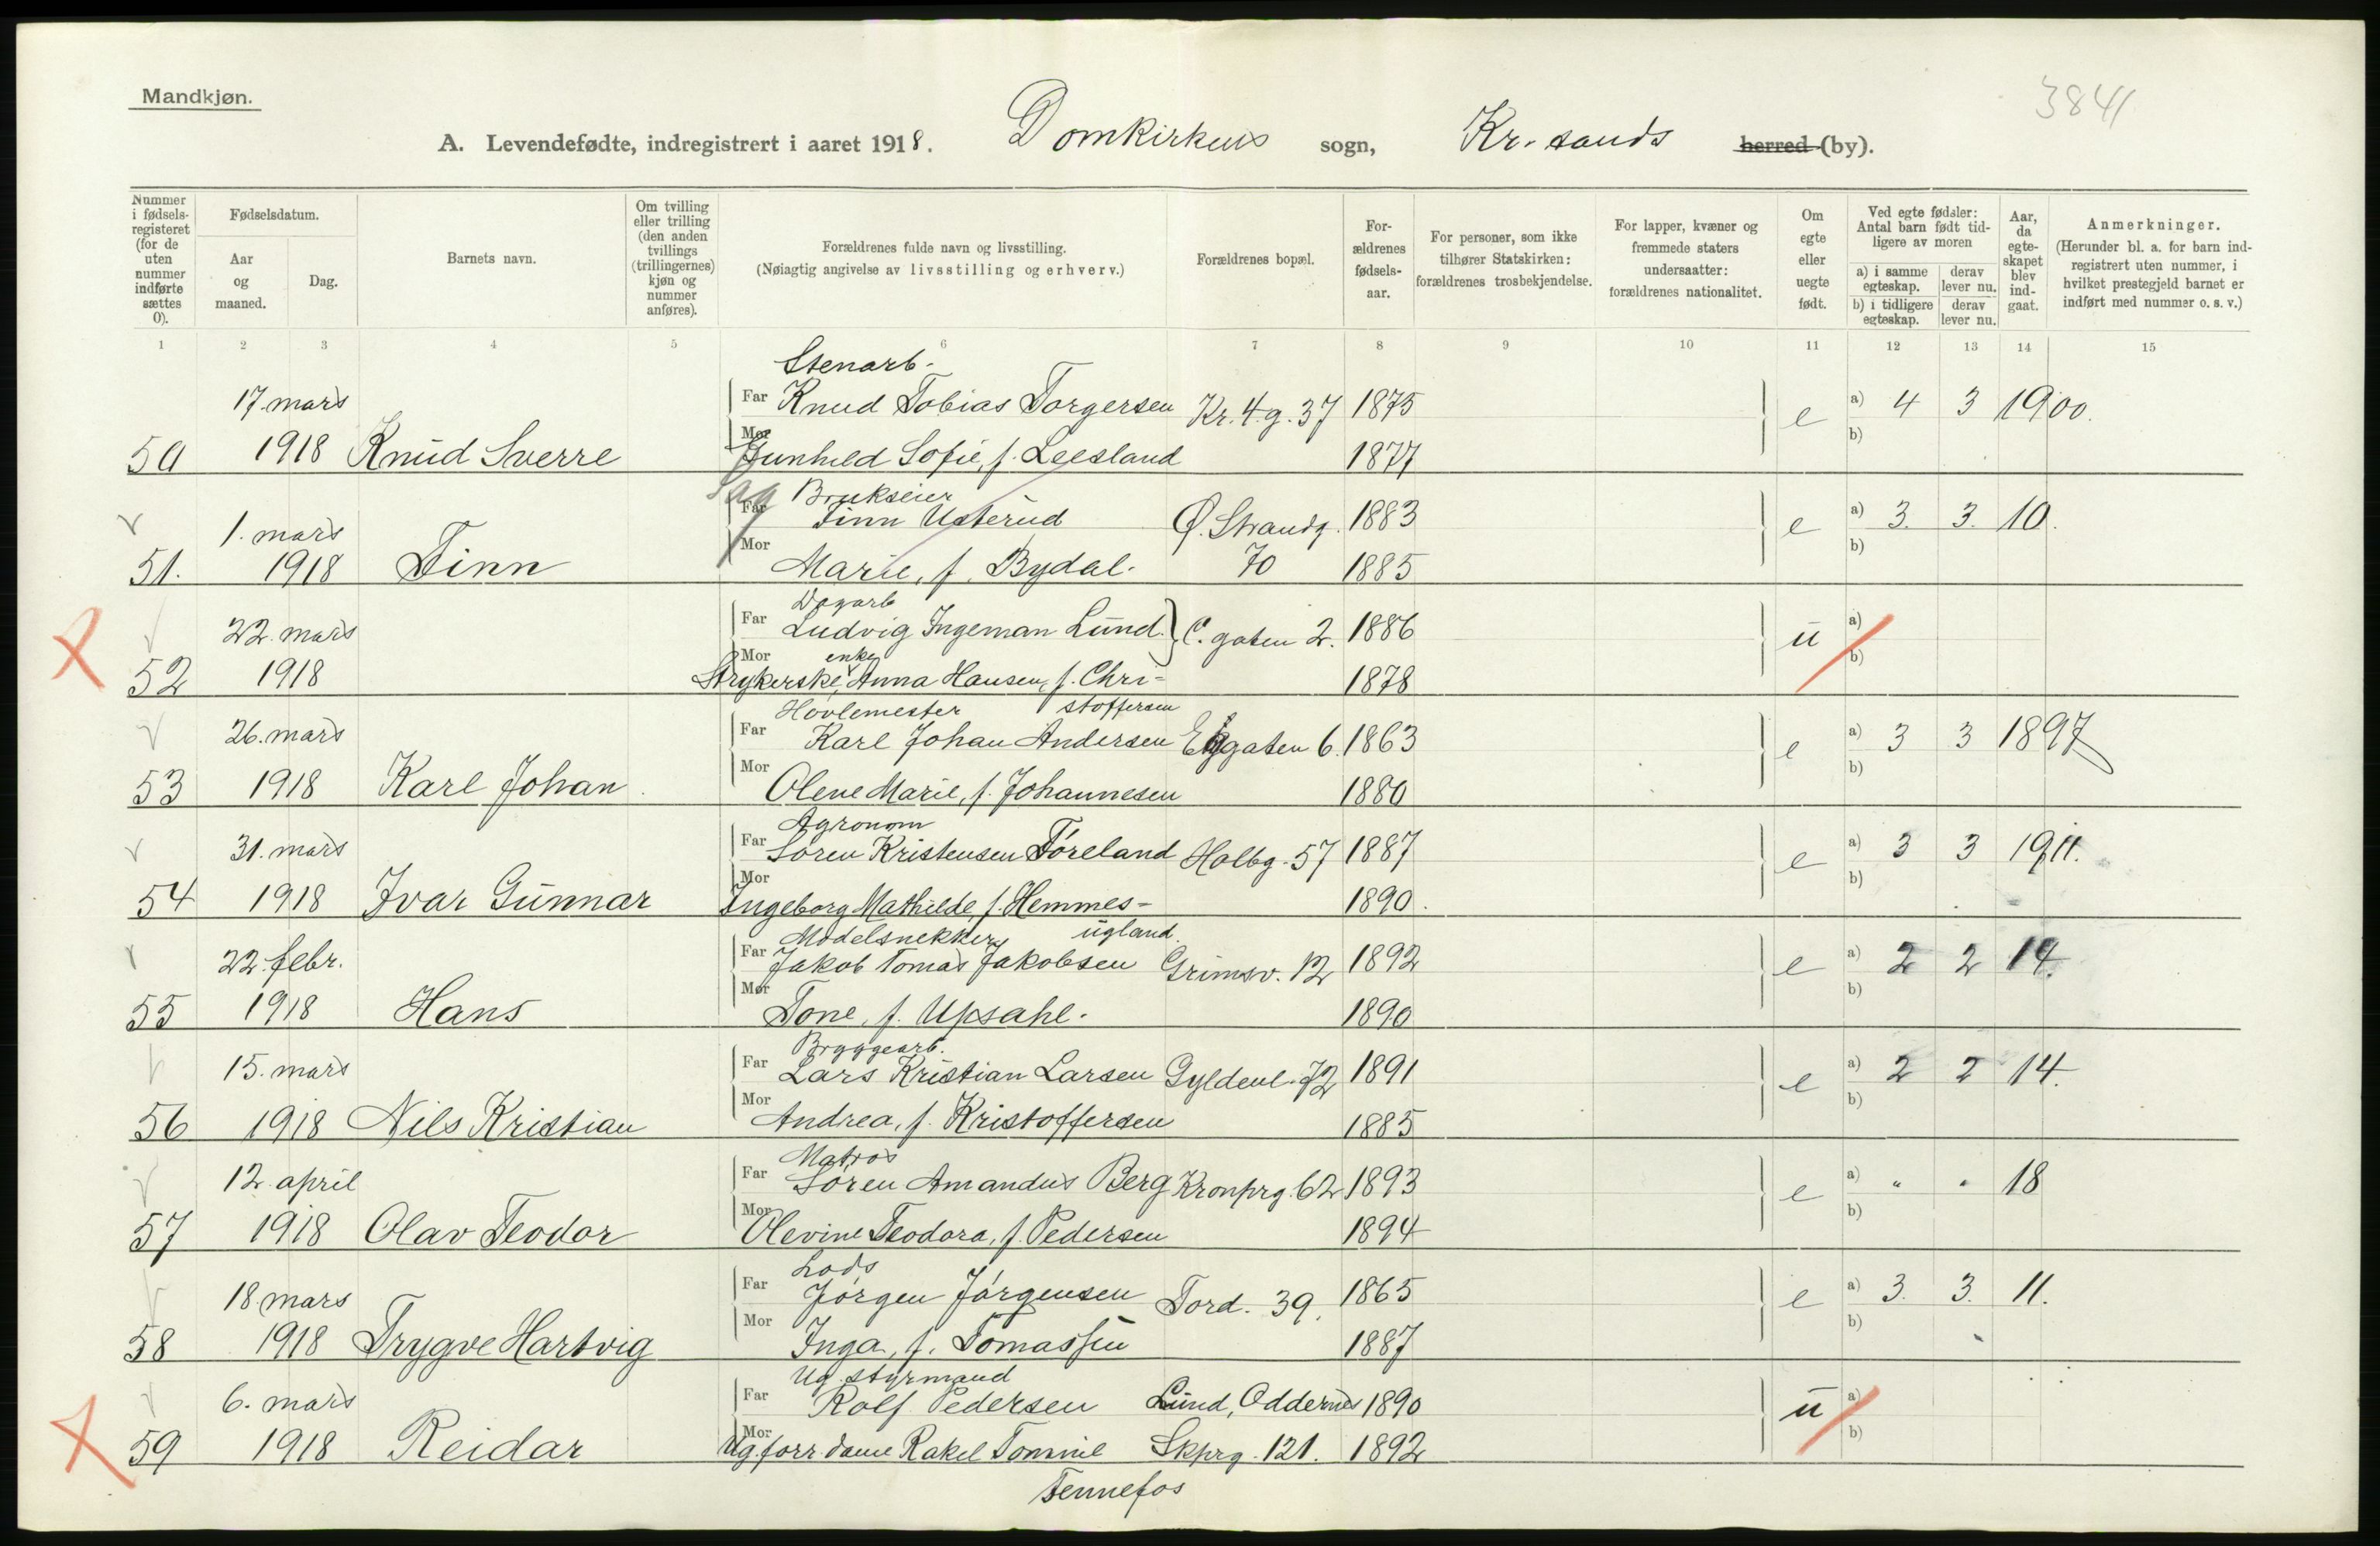 Mandkjøn.
3841
A. Levendefødte, indregistrert i aaret 1918. Domkirkens sogn, Kr.sands herred (by).
Nummer i fødsels-registeret (for de uten nummer indførte sættes 0).
Fødselsdatum.
Aar og maaned.
Dag.
Barnets navn.
Om tvilling eller trilling (den anden tvillings (trillingernes) kjøn og nummer anføres).
Forældrenes fulde navn og livsstilling.
(Nøiagtig angivelse av livsstilling og erhverv.)
Forældrenes bopæl.
For-ældrenes fødsels-aar.
For personer, som ikke tilhører Statskirken: forældrenes trosbekjendelse.
For lapper, kvæner og fremmede staters undersaatter: forældrenes nationalitet.
Om egte eller uegte født.
Ved egte fødsler: Antal barn født tid-ligere av moren
a) i samme egteskap.
derav lever nu.
b) i tidligere egteskap.
derav lever nu.
Aar, da egte-skapet blev ind-gaat.
Anmerkninger.
(Herunder bl. a. for barn ind-registrert uten nummer, i hvilket prestegjeld barnet er indført med nummer o. s. v.)
1 2 3 4 5 6 7 8 9 10 11 12 13 14 15
Stenarb.
17. mars Far Knud Tobias Torgersen Kr. 4. g. 37 1875 e a) 4 3 1900.
50 1918 Knud Sverre Mor Gunhild Sofie, f. Leesland 1877 b)
Sag Brukseier
1. mars Far Finn Usterud Ø. Strandg. 1883 e a) 3. 3. 10.
51. 1918 Finn Mor Marie, f. Bydal. 70 1885 b)
Dagarb
22. mars Far Ludvig Ingeman Lund. C. gaten 2. 1886 u a)
enke
52 1918 Mor Strykerske, Anna Hansen, f. Chri- 1878 b)
stoffersen
Hovlemester
26. mars Far Karl Johan Andersen Elvegaten 6. 1863 e a) 3 3 1897
53 1918 Karl Johan Mor Olene Marie, f. Johannesen 1880 b)
Agronom
31. mars Far Søren Kristensen Føreland Holbg. 57 1887 e a) 3 3 1911.
54 1918 Ivar Gunnar Mor Ingeborg Mathilde, f. Hemmes- 1890. b)
ugland.
Modelsnekker
22. febr. Far Jakob Tomas Jakobsen Grimsv. 12 1892 e a) 2 2 14.
55 1918 Hans Mor Tone, f. Upsahl. 1890 b)
Bryggearb.
15. mars Far Lars Kristian Larsen Gyldenl. 72 1891 e a) 2 2 14.
56 1918 Nils Kristian Mor Andrea, f. Kristoffersen 1885 b)
Matros
12. april Far Søren Amandus Berg Kronprg. 62 1893 e a) " " 18
57 1918 Olav Teodor Mor Olevine Teodora, f. Pedersen 1894 b)
Lods
18 mars Far Jørgen Jørgensen Tord. 39. 1865 e a) 3. 3. 11.
58 1918 Trygve Hartvig Mor Inga, f. Tomassen 1887 b)
Ug. styrmand
6. mars Far Rolf Pedersen Lund, Oddernes 1890 u a)
59 1918 Reidar Mor Ug. forr. dame Rakel Tommine Skprg. 121. 1892 b)
Tennefos